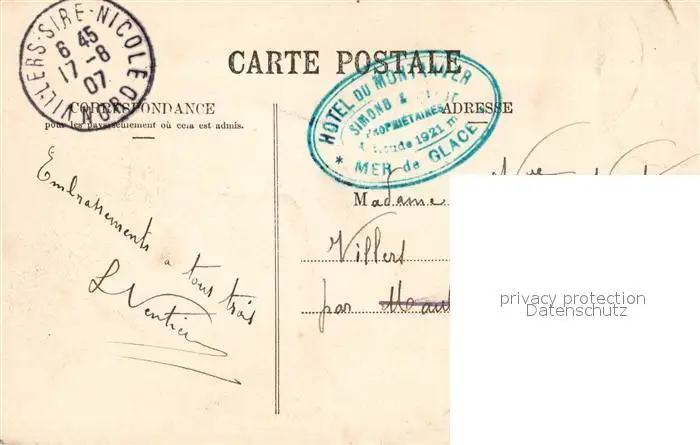 VILLERS-SIRE-NICOLE (NORD)
6 45
17 -8
07
CARTE POSTALE
HOTEL DU MONTENVER
SIMOND &
PROPRIÉTAIRES
Altitude 1921 m
* MER de GLACE *
CORRESPONDANCE
pour les pays se chargement où cela est admis.
ADRESSE
Embrassements
à tous trois
L Ventien
Madame
Villers
par
privacy protection
Datenschutz